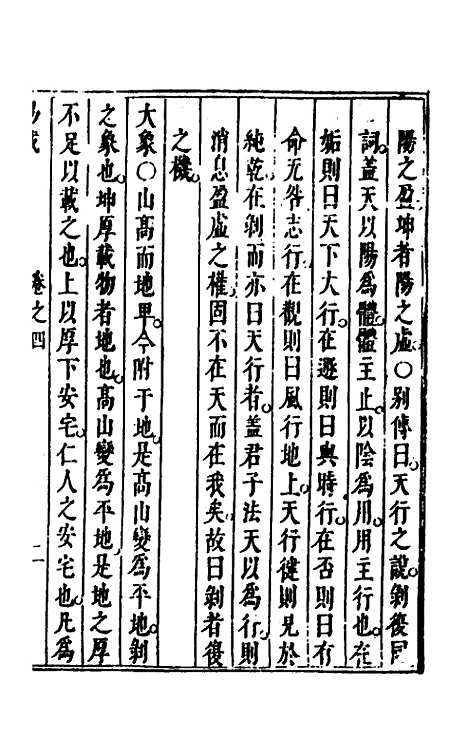 陽之盈坤者陽之虛○別傳曰天行之說剝復同
詞蓋天以陽爲體體主止以陰爲用用主行也在
姤則曰天下大行在遯則曰與時行在否則曰有
命无咎志行在觀則曰風行地上天行健則見於
純乾在剝而亦曰天行者蓋君子法天以爲行則
消息盈虛之權固不在天而在我矣故曰剝者復
之機
大象○山高而地卑今附于地是高山變爲平地剝
之象也坤厚載物者地也高山變爲平地是地之厚
不足以載之也上以厚下安宅仁人之安宅也凡爲
卷之四 二